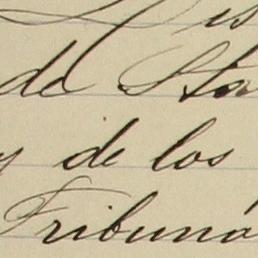 de Sta
y de los
Tribuna